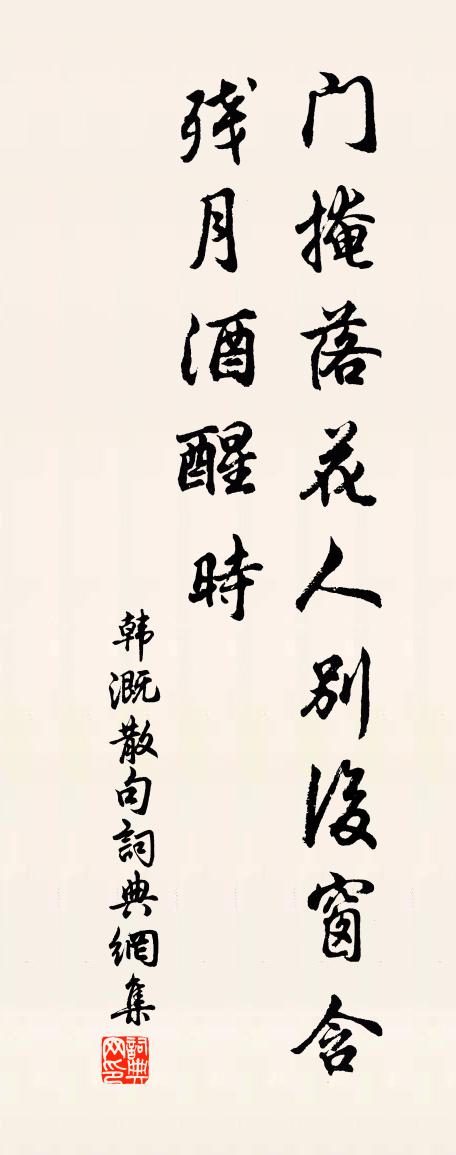 门掩落花人别後窗含
残月酒醒時
韩溉散句詞典網集
詞典网印